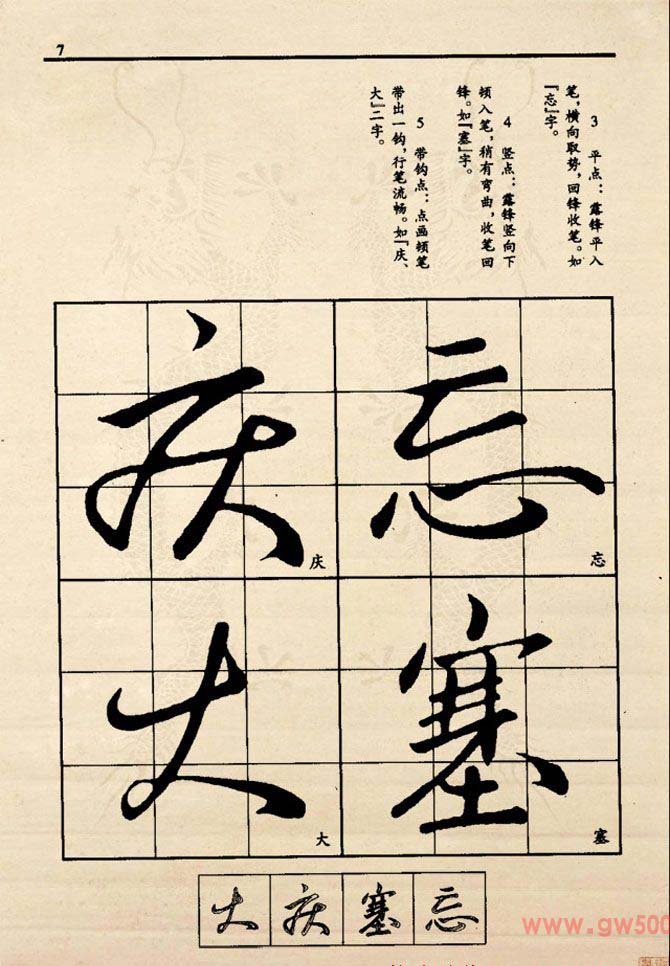 7
3 平点：露锋平入
笔，横向取势，回锋收笔。如
『忘』字。
4 竖点：露锋竖向下
顿入笔，稍有弯曲，收笔回
锋。如『塞』字。
5 带钩点：点画顿笔
带出一钩，行笔流畅。如『庆、
大』二字。
忘
忘
塞
塞
庆
庆
大
大
大 庆 塞 忘
www.gw500